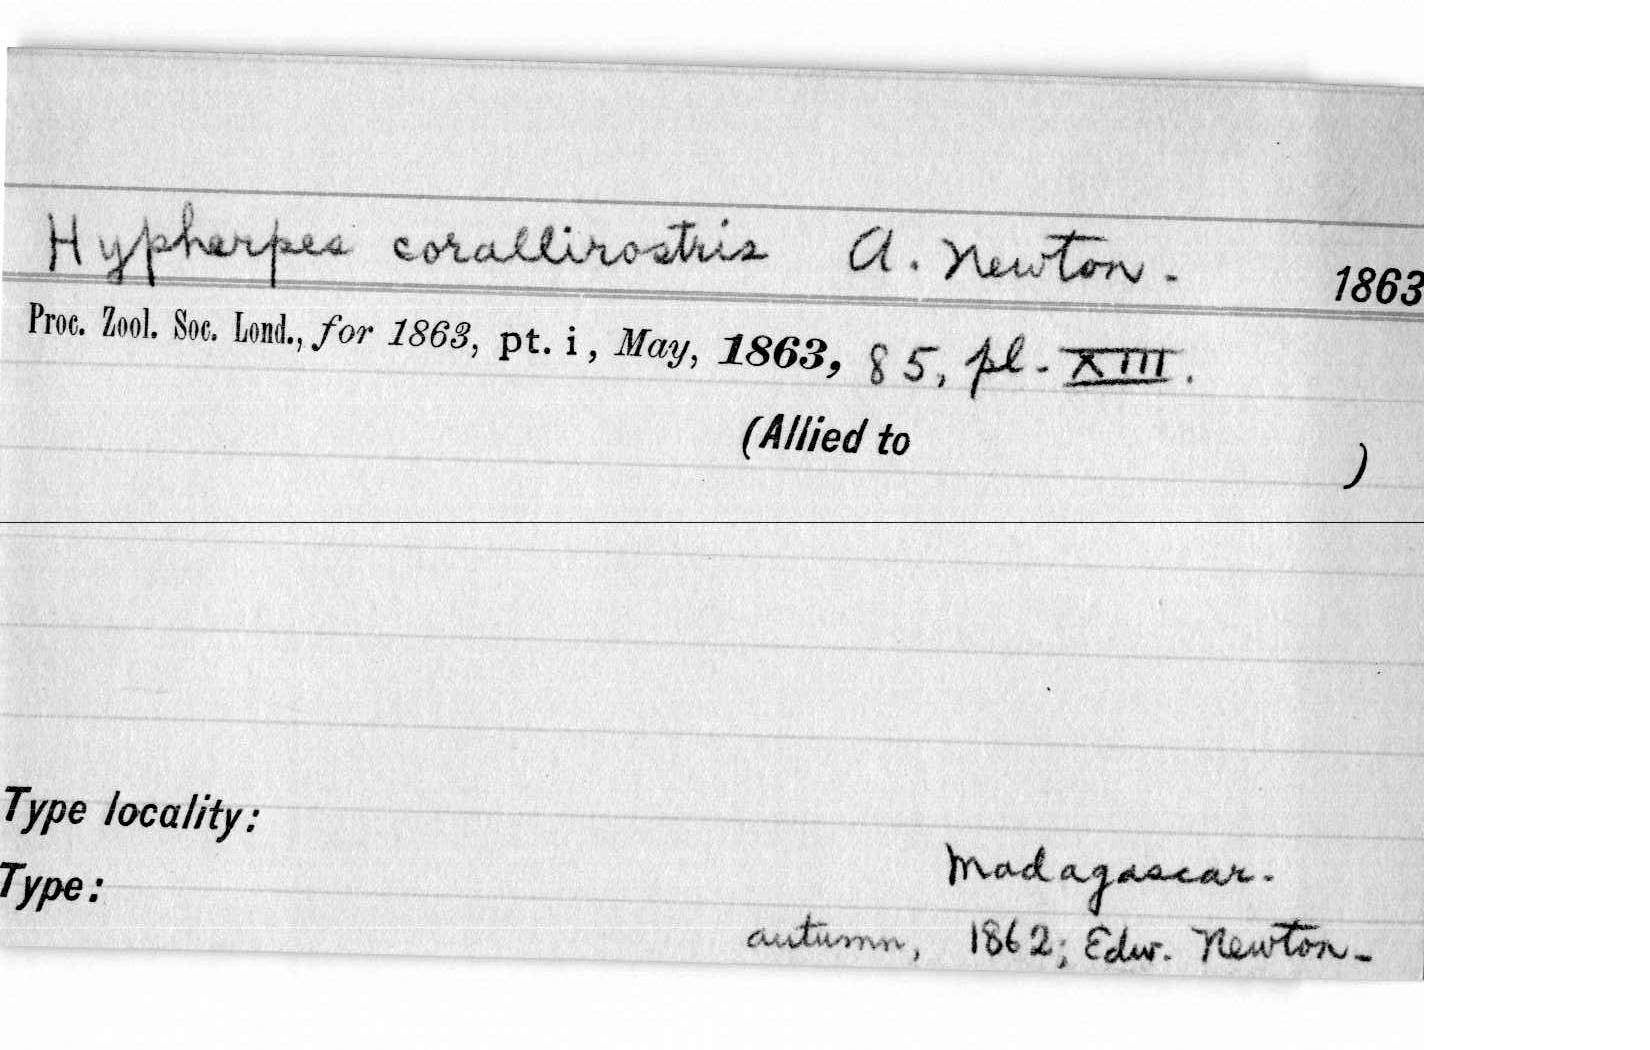 Hypherpes corallirostris A. Newton. 1863
Proc. Zool. Soc. Lond., for 1863, pt. i, May, 1863, 85, pl. XIII.
(Allied to )
Type locality:
Madagascar.
Type:
autumn, 1862; Edw. Newton.